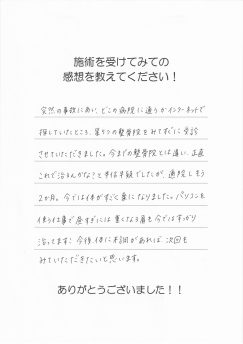 施術を受けてみての
感想を教えてください！
突然の事故にあい、どこの病院に通うかインターネットで
探していたところ、星野の整骨院をみてすぐに受診
させていただきました。今までの整骨院とは違い、正直
これで治るんかな？と半信半疑でしたが、通院しもう
2か月。今では体がすごく楽になりました。パソコンを
使う仕事で昼すぎには重くなる肩も今ではすっかり
治ってます！今後、体に不調があれば、次回も
みていただきたいと思います。
ありがとうございました！！